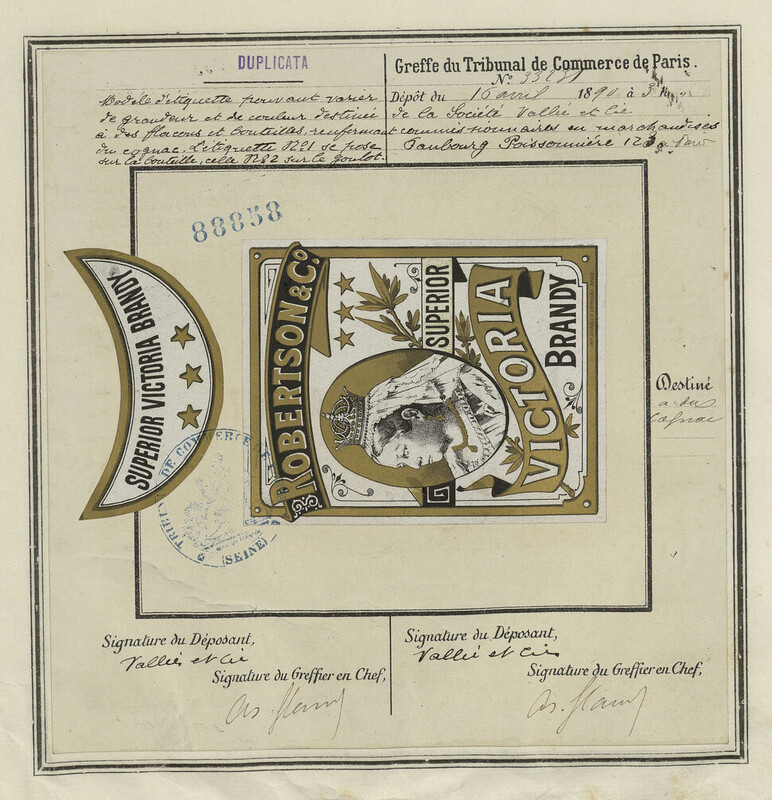 DUPLICATA
Greffe du Tribunal de Commerce de Paris.
Modèle d'étiquette pouvant varier
de grandeur et de couleur destiné
à des flacons et bouteilles, renfermant
du cognac. L'étiquette No1 se pose
sur la bouteille, celle No2 sur le goulot.
No
Dépôt du 16 avril 1890 à 3
de la Société Vallié et Cie
commissionnaires en marchandises
Faubourg Poissonnière 123
88858
SUPERIOR VICTORIA BRANDY
ROBERTSON & Co
SUPERIOR
VICTORIA
BRANDY
TRIBUNAL DE COMMERCE
(SEINE)
Destiné
à du
Cognac
Signature du Déposant,
Vallié et Cie
Signature du Greffier en Chef,
Signature du Déposant,
Vallié et Cie
Signature du Greffier en Chef,